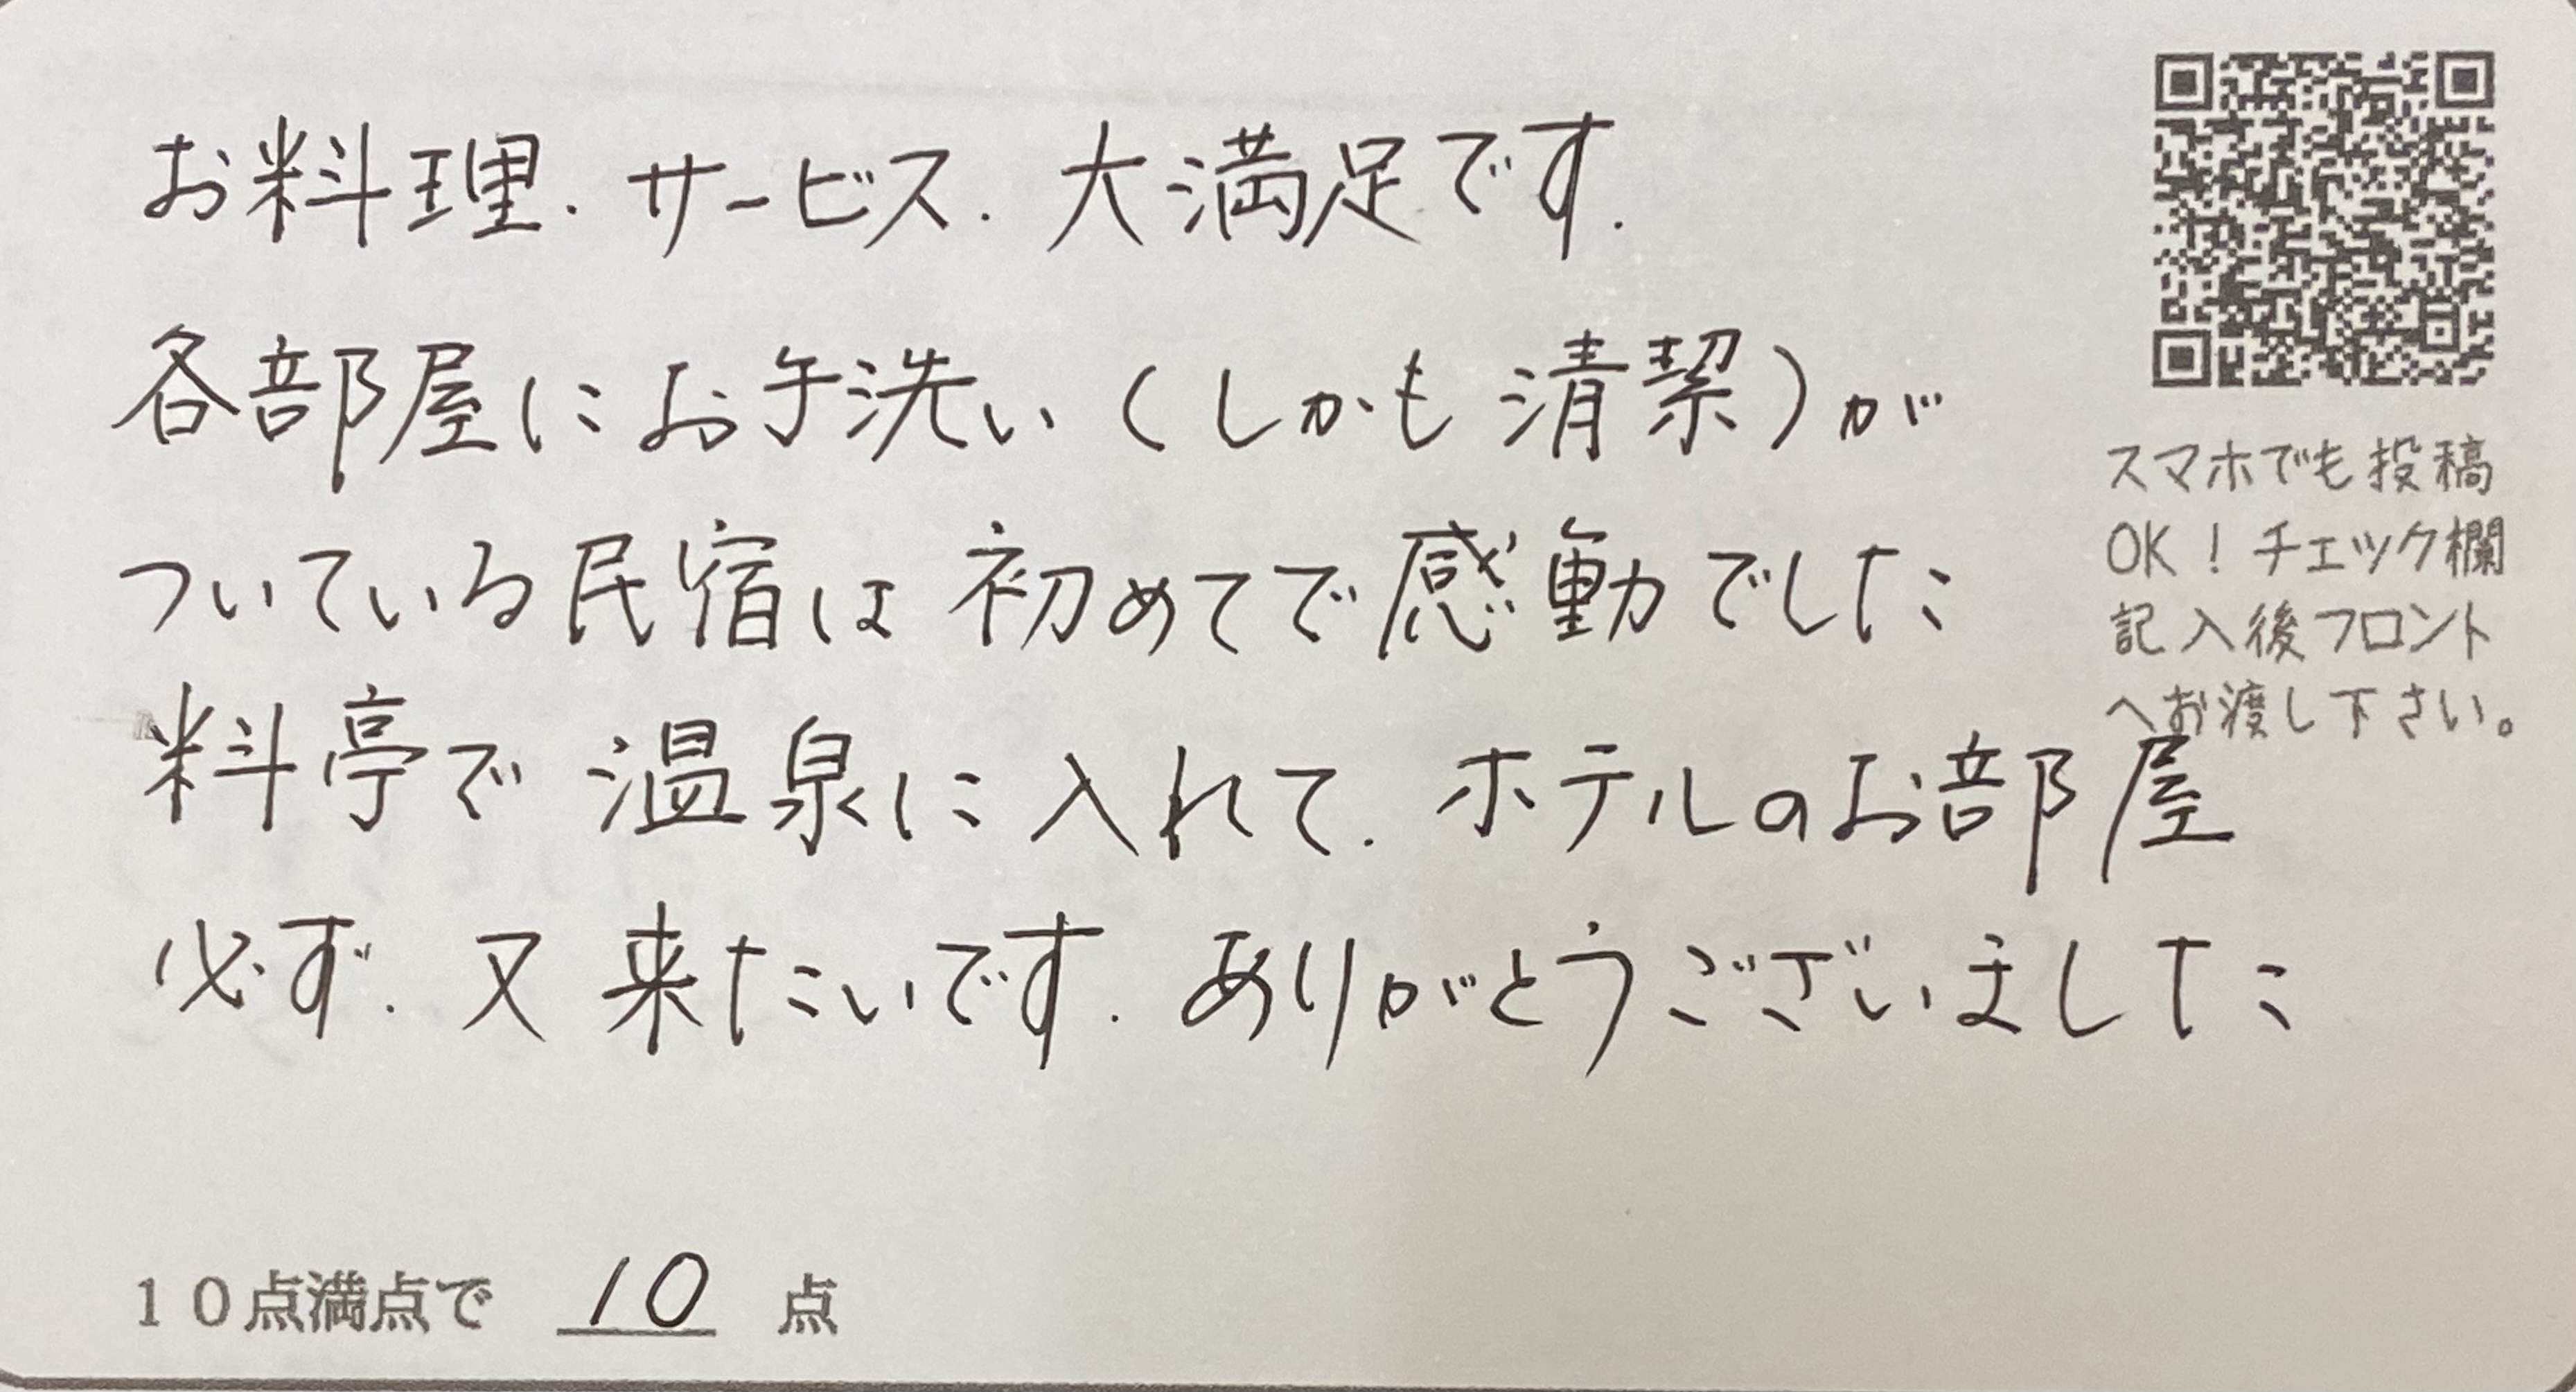 お料理.サービス.大満足です.
各部屋にお手洗い(しかも清潔)が
ついている民宿は初めてで感動でした
料亭で温泉に入れて.ホテルのお部屋
必ず.又来たいです.ありがとうございました
10点満点で 10 点
スマホでも投稿
OK!チェック欄
記入後フロント
へお渡し下さい。